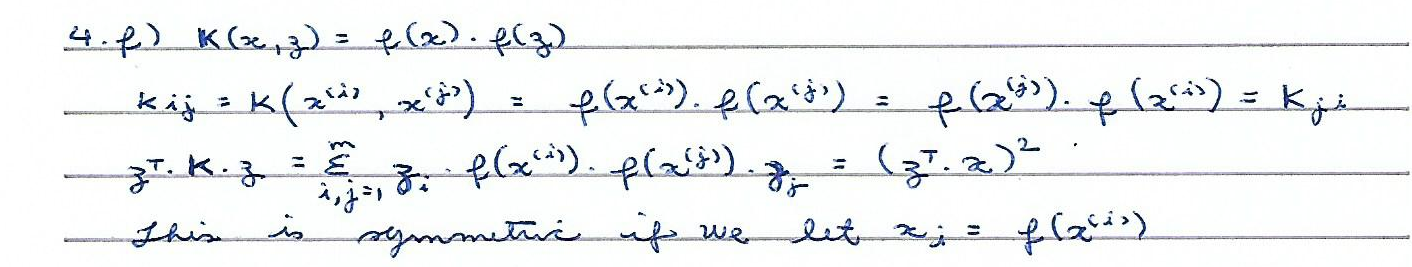 4.f) K(x,z) = f(x). f(z)
Kij = K(x⁽ⁱ⁾, x⁽ʲ⁾) = f(x⁽ⁱ⁾). f(x⁽ʲ⁾) = f(x⁽ʲ⁾). f(x⁽ⁱ⁾) = Kji
zᵀ. K. z = Σᵐi,j=1 zi. f(x⁽ⁱ⁾). f(x⁽ʲ⁾). zj = (zᵀ. x)²
This is symmetric if we let xi = f(x⁽ⁱ⁾)